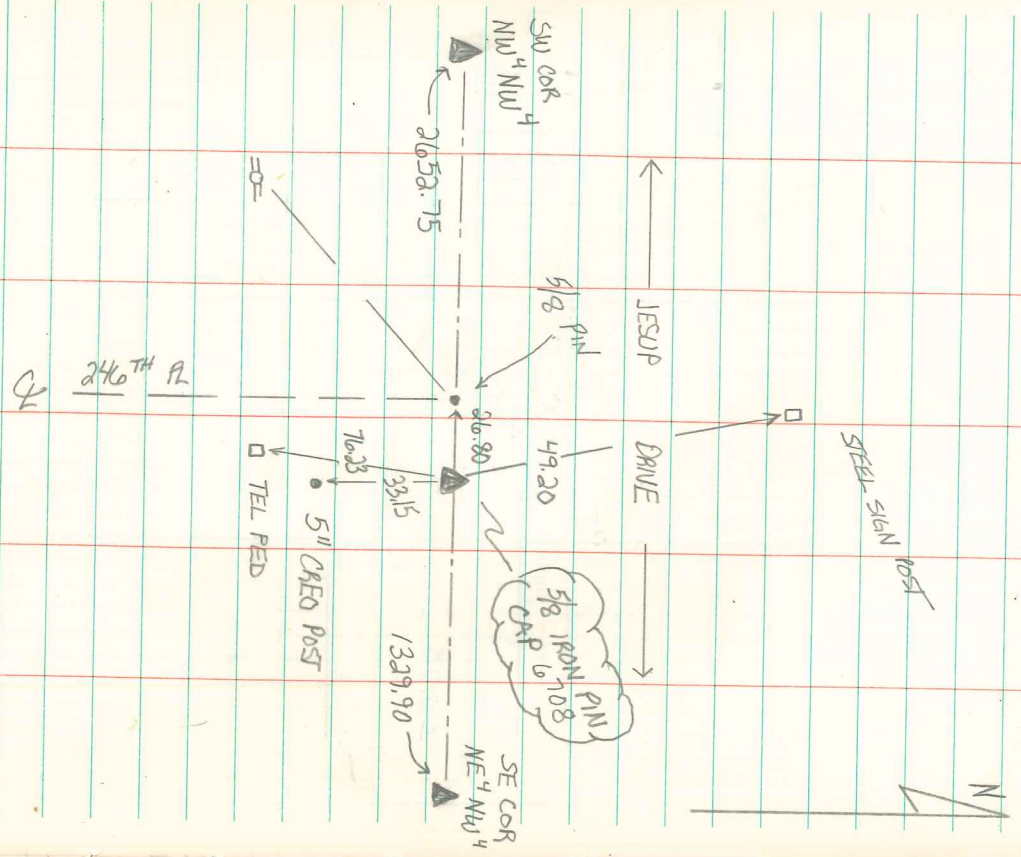 SW COR
NW⁴ NW⁴
2652.75
5/8 PIN
JESUP DRIVE
STEEL SIGN POST
26.80
49.20
246TH PL
℄
76.23
33.15
TEL PED
5" CREO POST
5/8 IRON PIN
CAP 6708
1329.90
SE COR
NE⁴ NW⁴
N